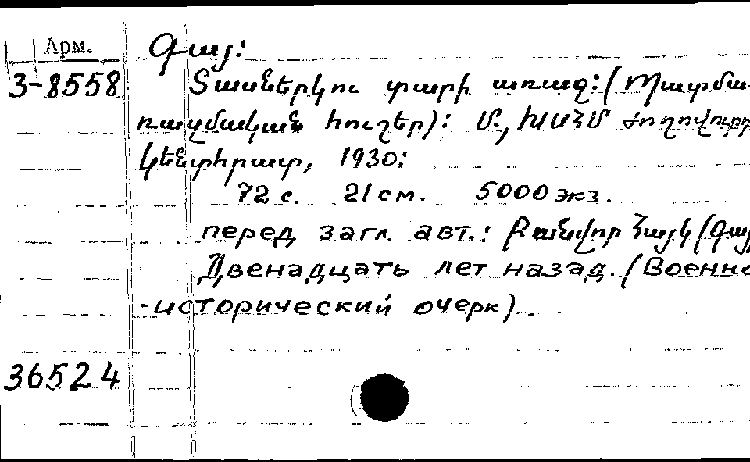 Арм.
Գայ:
3-8558 Տասներկու տարի առաջ: (Պատմա-
ռազմական հուշեր): Մ., ԽՍՀՄ ժողովուրդ
կենտհրատ, 1930:
72 с. 21 см. 5000 экз.
перед загл. авт.: Բանվոր Հայկ (Գայ
Двенадцать лет назад. (Военно
-исторический очерк).
36524